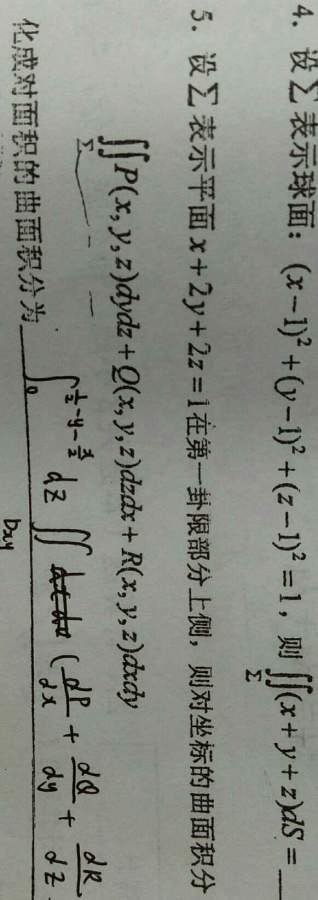 4. 设∑表示球面：(x-1)²+(y-1)²+(z-1)²=1，则∬_Σ(x+y+z)dS=
5. 设∑表示平面x+2y+2z=1在第一卦限部分上侧，则对坐标的曲面积分
∬_Σ P(x,y,z)dydz+Q(x,y,z)dzdx+R(x,y,z)dxdy
化成对面积的曲面积分为 ∫₀^{½-y-x/2} dz ∬_{Dxy} (dP/dx + dQ/dy + dR/dz